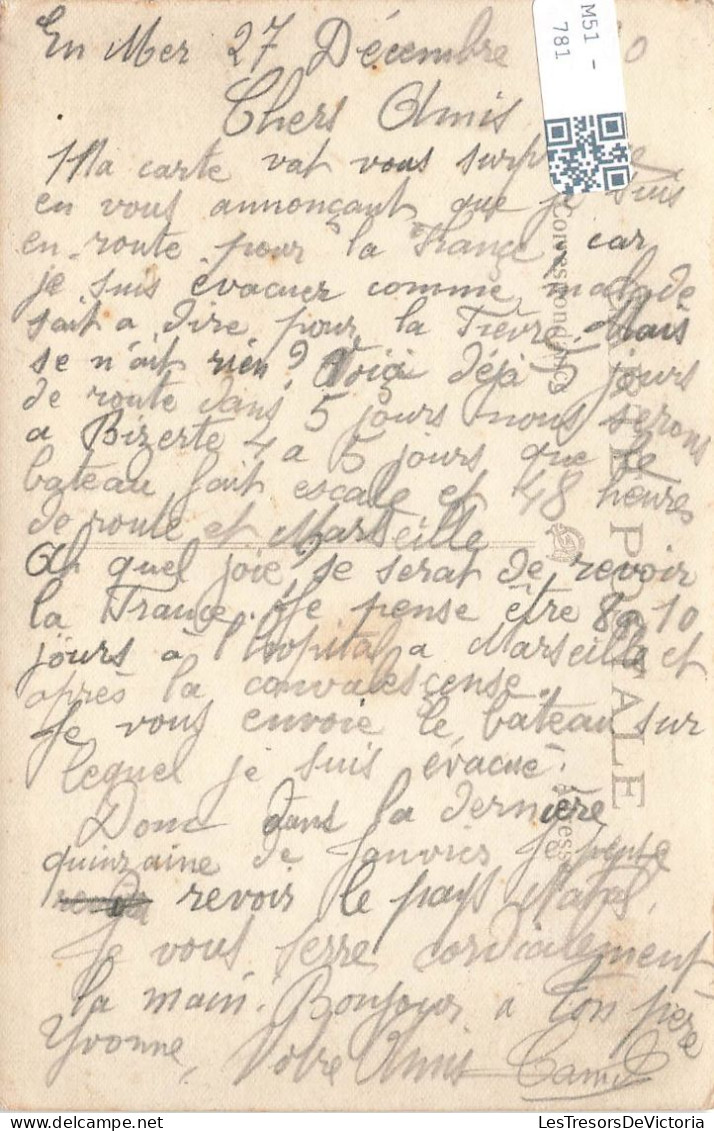 En Mer 27 Décembre
Chers Amis
Ma carte vat vous
en vous annonçant que je suis
en route pour la France, car
je suis évacuer comme malade
sait a dire pour la Fièvre. Mais
se n'ait rien? Voiçi déjà 5 jours
de route dans 5 jours nous serons
a Bizerte 4 a 5 jours que le
bateau fait escale et 48 heures
de route et Marseille
Ah quel joie? se serat de revoir
la France. Je pense être 8 a 10
jours à l'hopital a Marseille et
après la convalesçense.
Je vous envoie le bateau sur
lequel je suis évacué.
Donc dans la dernière
quinzaine de Janvier je pense
revoir le pays Natal.
Je vous serre cordialement
la main. Bonjour a ton père
Yvonne, Votre Amis
CARTE POSTALE
Correspondance
Adresse
M51 -
781
LesTresorsDeVictoria.com